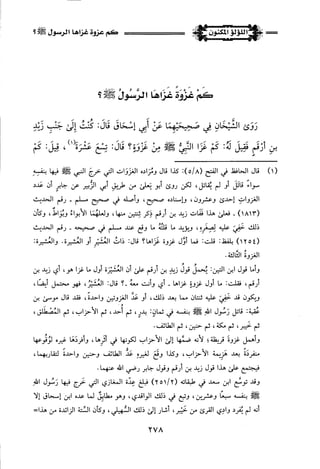 كم غزوة غزاها الرسول ﷺ ؟
اللؤلؤ المكنون
كَمْ غَزْوَةً غَزَاهَا الرَّسُولُ ﷺ ؟
رَوَى الشَّيْخَانِ فِي صَحِيحَيْهِمَا عَنْ أَبِي إِسْحَاقَ قَالَ: كُنْتُ إِلَى جَنْبِ زَيْدِ
بنِ أَرْقَمَ فَقِيلَ لَهُ: كَمْ غَزَا النَّبِيُّ ﷺ مِنْ غَزْوَةٍ؟ قَالَ: تِسْعَ عَشْرَةَ(١)، قِيلَ: كَمْ
(١) قال الحافظ في الفتح (٥/٨): كذا قال ومُرَاده الغَزَوات التي خرج النبي ﷺ فيها بنفسه
سواء قاتَلَ أو لم يُقاتِل، لكن روى أبو يعلى من طريق أبي الزبير عن جابر أن عدد
الغزوات إحدى وعشرون، وإسناده صحيح، وأصله في صحيح مسلم - رقم الحديث
(١٨١٣) - فعلى هذا فَاتَ زيد بن أرقم ذكر ثنتين منها، ولعلهما الأبواء وبُوَاط، وكأن
ذلك خفي عليه لِصِغَرِهِ، ويؤيد ما قلته ما وقع عند مسلم في صحيحه - رقم الحديث
(١٢٥٤) بلفظ: قلت: فما أول غزوة غزاها؟ قال: ذات العُسَيْرِ أو العُشيرة. والعشيرة:
الغزوة الثالثة.
وأما قول ابن التين: يُحمل قول زيد بن أرقم على أن العُشَيْرَة أول ما غزا هو، أي زيد بن
أرقم، فقلت: ما أول غزوة غزاها - أي وأنت معه -؟ قال: العُشير، فهو محتمل أيضًا،
ويكون قد خفي عليه ثنتان مما بعد ذلك، أو عَدَّ الغزوتين واحدة، فقد قال موسى بن
عقبة: قاتل رسول الله ﷺ بنفسه في ثمان: بدر، ثم أُحد، ثم الأحزاب، ثم المُصْطَلِق،
ثم خيبر، ثم مكة، ثم حنين، ثم الطائف.
وأهمل غزوة قريظة؛ لأنه ضمَّها إلى الأحزاب لكونها في أثرها، وأفردها غيره لوقوعها
منفردة بعد هزيمة الأحزاب، وكذا وقع لغيره عَدُّ الطائف وحنين واحدة لتقاربهما،
فيجتمع على هذا قول زيد بن أرقم وقول جابر رضي الله عنهما.
وقد توسع ابن سعد في طبقاته (٢٥١/٢) فبلغ عِدَّة المغازي التي خرج فيها رسول الله
ﷺ بنفسه سبعًا وعشرين، وتبع في ذلك الواقدي، وهو مطابق لما عده ابن إسحاق إلا
أنه لم يُفرد وادي القرى من خيبر، أشار إلى ذلك السهيلي، وكأن الستة الزائدة من هذا=
٢٧٨